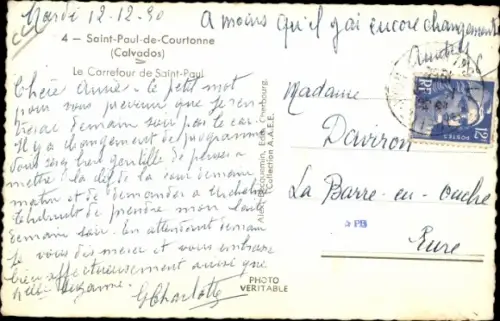 Mardi 12.12.50
A moins qu'il y ai encore changement
4 - Saint-Paul-de-Courtonne
(Calvados)
Le Carrefour de Saint-Paul
Chère Annie - le petit mot
pour vous prévenir que je ren
demain soir par le car
Il y a changement de programme
Vous serez bien gentille de penser à
mettre la clef de la cour demain
matin et de demander a
de prendre mon
demain soir. En attendant demain
je vous dis merci et vous embrasse
bien affectueusement ainsi que
Suzanne.
G Charlotte
PHOTO
VERITABLE
Alex. Jacquemin, Edit. Cherbourg.
Collection A.A.E.E.
RF
12F
POSTES
Madame
Daviron
La Barre-en-Ouche
à PB
Eure